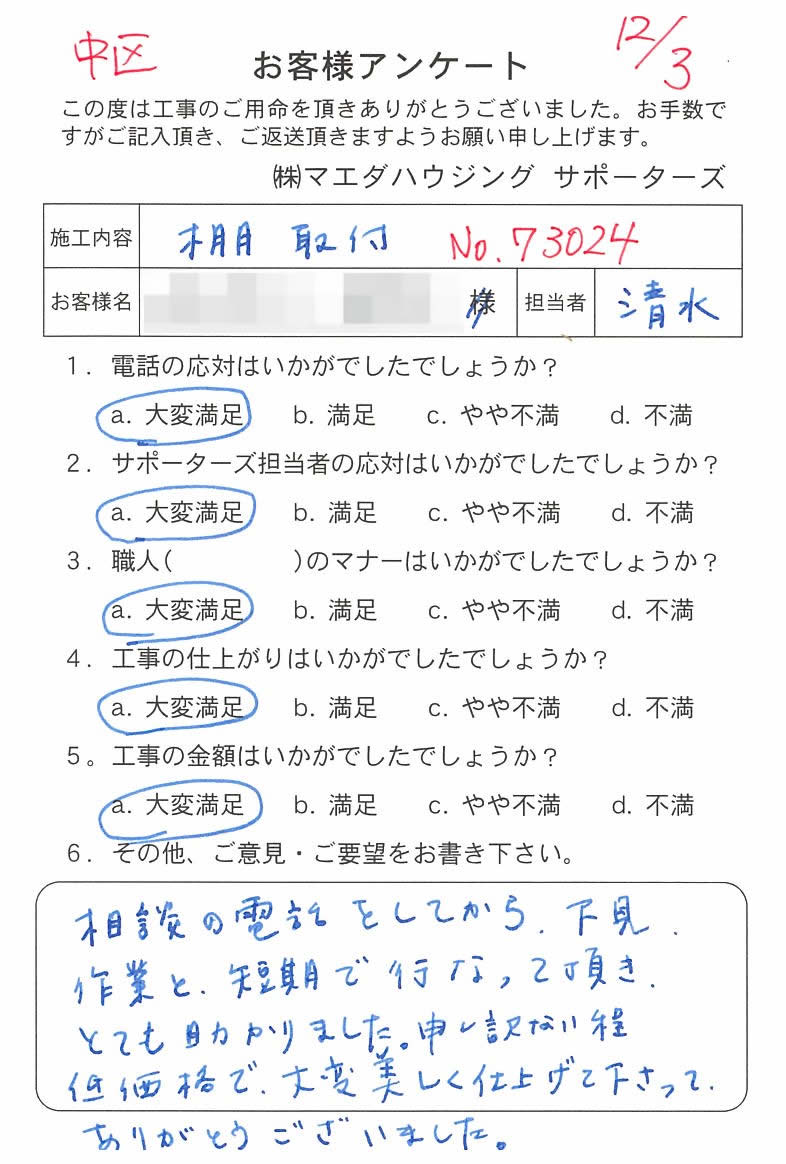 中区
12/3
お客様アンケート
この度は工事のご用命を頂きありがとうございました。お手数で
すがご記入頂き、ご返送頂きますようお願い申し上げます。
㈱マエダハウジング サポーターズ
施工内容 棚 取付 No.73024
お客様名 様 担当者 清水
1. 電話の応対はいかがでしたでしょうか?
a. 大変満足 b. 満足 c. やや不満 d. 不満
2. サポーターズ担当者の応対はいかがでしたでしょうか?
a. 大変満足 b. 満足 c. やや不満 d. 不満
3. 職人( )のマナーはいかがでしたでしょうか?
a. 大変満足 b. 満足 c. やや不満 d. 不満
4. 工事の仕上がりはいかがでしたでしょうか?
a. 大変満足 b. 満足 c. やや不満 d. 不満
5。工事の金額はいかがでしたでしょうか?
a. 大変満足 b. 満足 c. やや不満 d. 不満
6. その他、ご意見・ご要望をお書き下さい。
相談の電話をしてから、下見、
作業と、短期で行なって頂き、
とても助かりました。申し訳ない程
低価格で、大変美しく仕上げて下さって、
ありがとうございました。